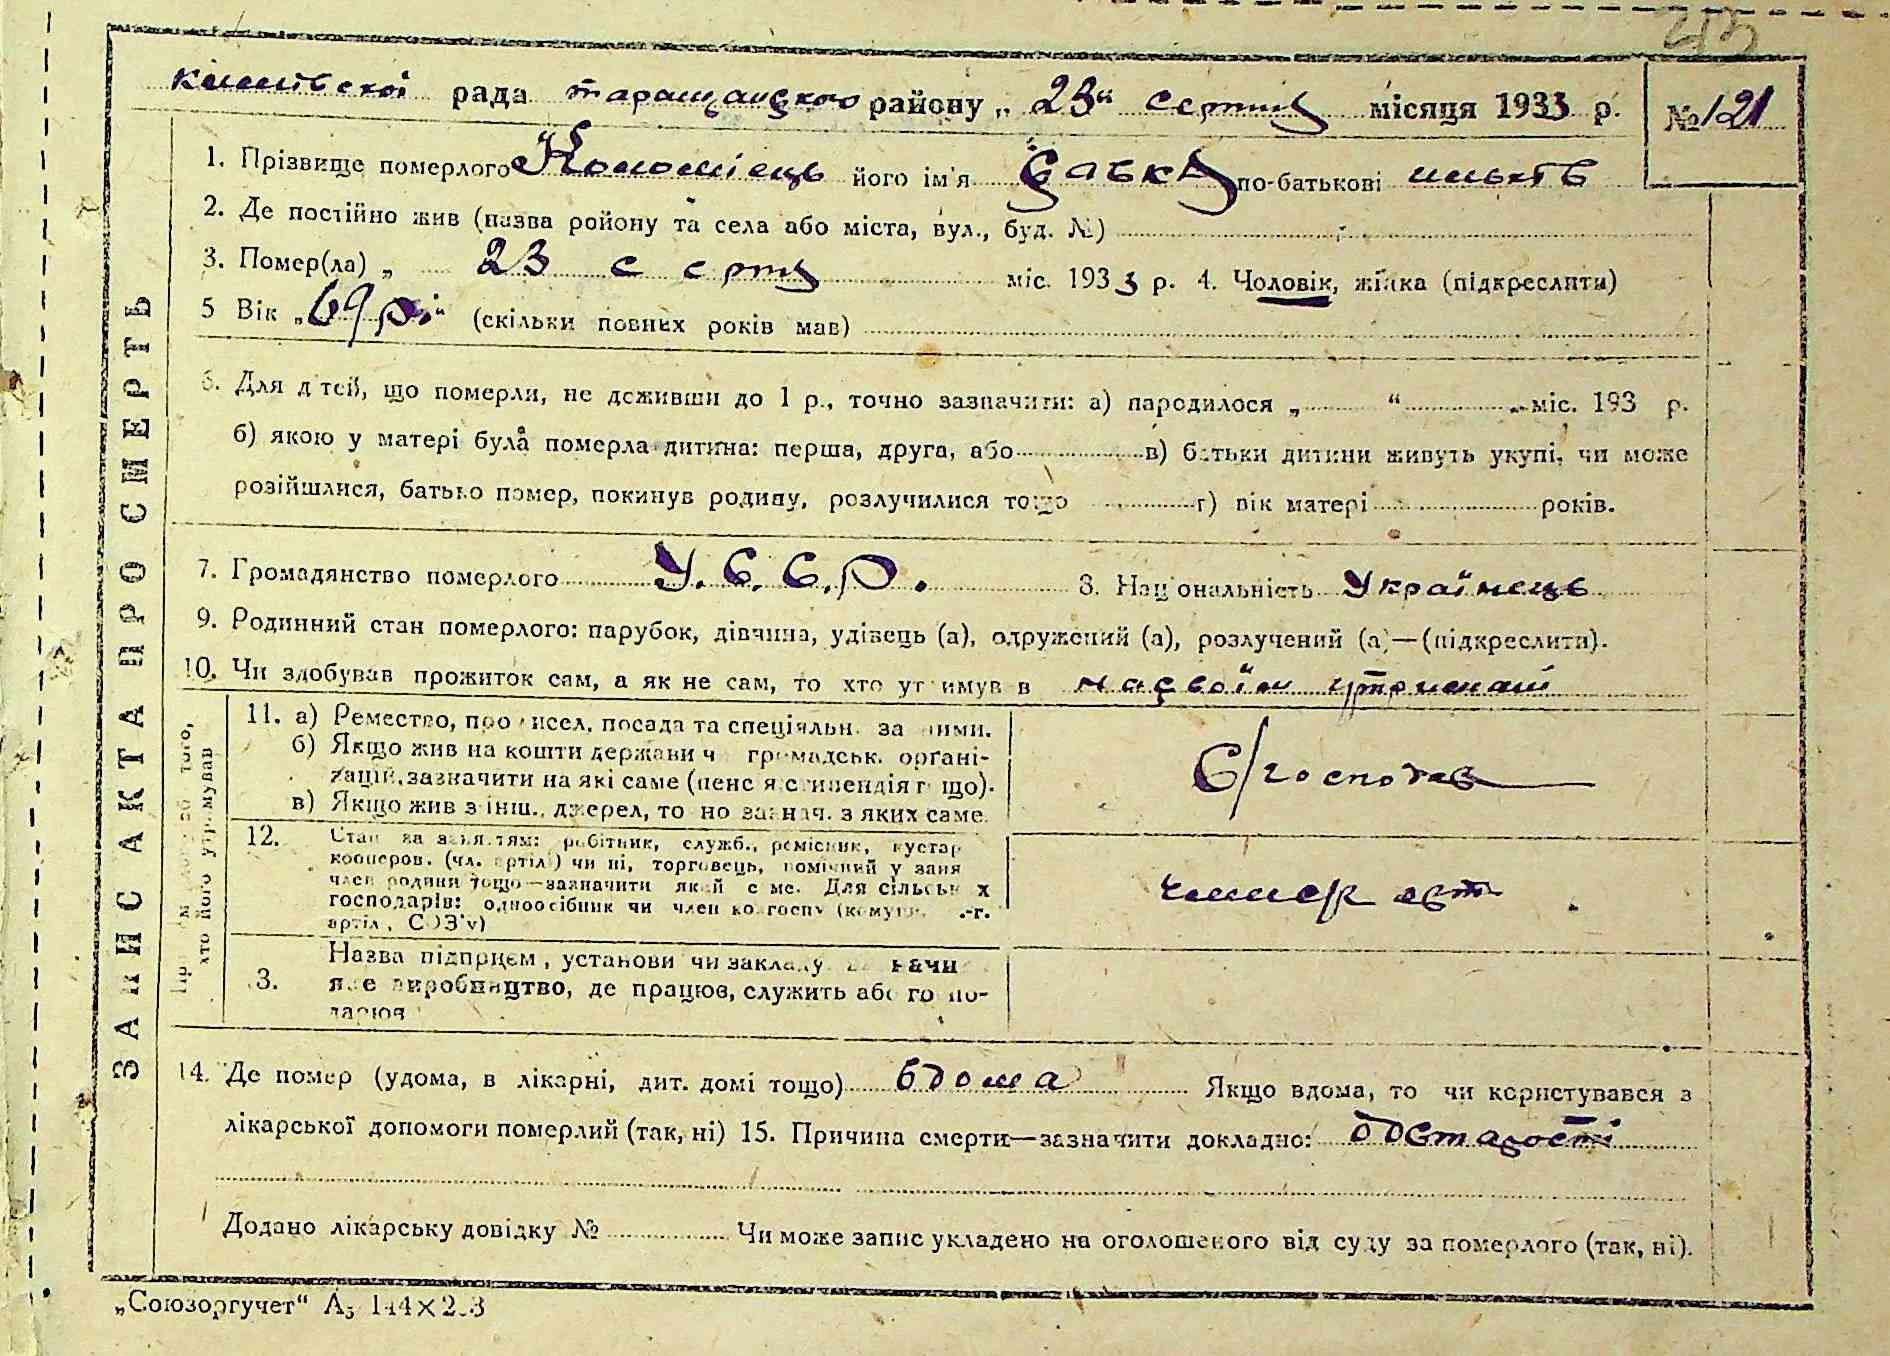 213
рада таращанского району „ 23" серпня місяця 1933 р. № 121
1. Прізвище померлого Коломієць його ім'я Савка по-батькові
2. Де постійно жив (назва ройону та села або міста, вул., буд. №)
3. Помер(ла) „ 23 серпня міс. 1933 р. 4. Чоловік, жінка (підкреслити)
5 Вік „69 рі" (скільки повних років мав)
6. Для дтей, що померли, не доживши до 1 р., точно зазначити: а) народилося „ " міс. 193 р.
б) якою у матері була померла дитина: перша, друга, або в) батьки дитини живуть укупі, чи може
розійшлися, батько помер, покинув родину, розлучилися тощо г) вік матері років.
7. Громадянство померлого У.С.С.Р. 8. Національність Українець
9. Родинний стан померлого: парубок, дівчина, удівець (а), одружений (а), розлучений (а)—(підкреслити).
10. Чи здобував прожиток сам, а як не сам, то хто утримував на своїм
11. а) Ремество, промисел, посада та спеціяльн. за ними.
б) Якщо жив на кошти держави ч громадськ. органі-
зацій, зазначити на які саме (пенсія, стипендія тощо).
в) Якщо жив з інш. джерел, то но зазнач. з яких саме.
С/господар
12. Стан за заняттям: робітник, служб., ремісник, кустар
кооперов. (чл. артілі) чи ні, торговець, помічний у заня
член родини тощо—зазначити який саме. Для сільських
господарів: одноосібник чи член колгоспу (комуни, .-г.
артіл, СОЗ'у)
член арт
3. Назва підприєм, установи чи закладу
яке виробництво, де працює, служить або го по-
дарює
14. Де помер (удома, в лікарні, дит. домі тощо) вдома Якщо вдома, то чи користувався з
лікарської допомоги померлий (так, ні) 15. Причина смерти—зазначити докладно: одстарости
Додано лікарську довідку № Чи може запис укладено на оголошеного від суду за померлого (так, ні).
„Союзоргучет" А5 144×2
ЗАПИС АКТА ПРО СМЕРТЬ
того,
хто його утримував